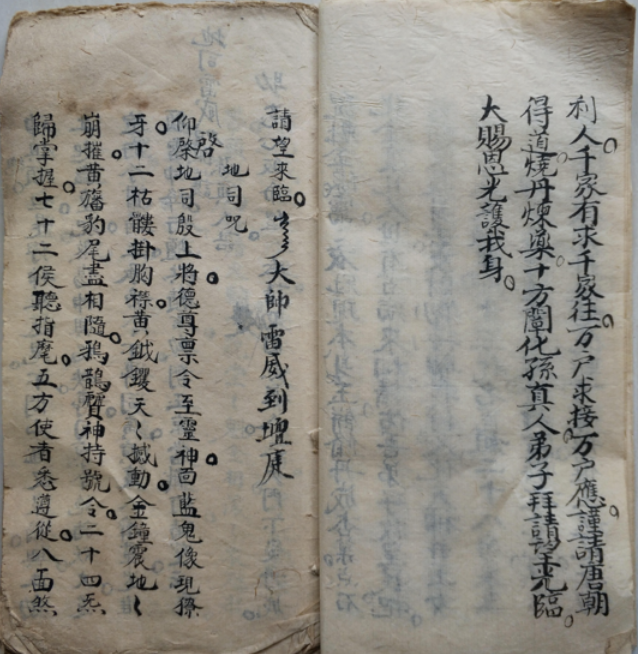 利人千家有求千家往万户求接万户應謹請唐朝
得道燒丹煉藥十方闡化孫真人弟子拜請望光臨
大賜恩光護我身
請望來臨 大帥雷威到壇庭
地司咒
仰啓地司殷上將德尊禀令至靈神面監鬼像現獠
牙十二枯髏掛胸襟黄鉞钁天〻撼動金鐘震地〻
崩摧黄旛豹尾盡相隨鴉鵲神持號令二十四炁
歸掌握七十二侯聽指麾五方使者悉遵從八面煞